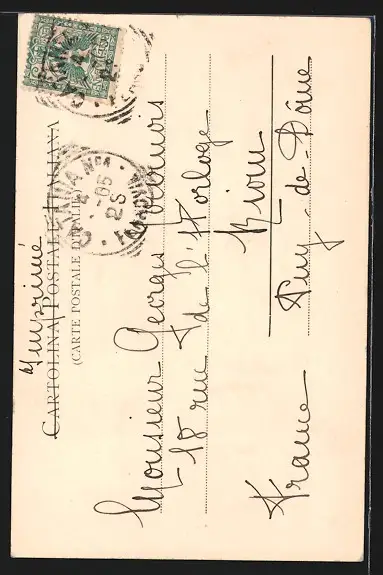 Imprimé
CARTOLINA POSTALE ITALIANA
(CARTE POSTALE D'ITALIE)
Monsieur Georges
18 rue de l'Horloge
Riom
Puy-de-Dôme
France